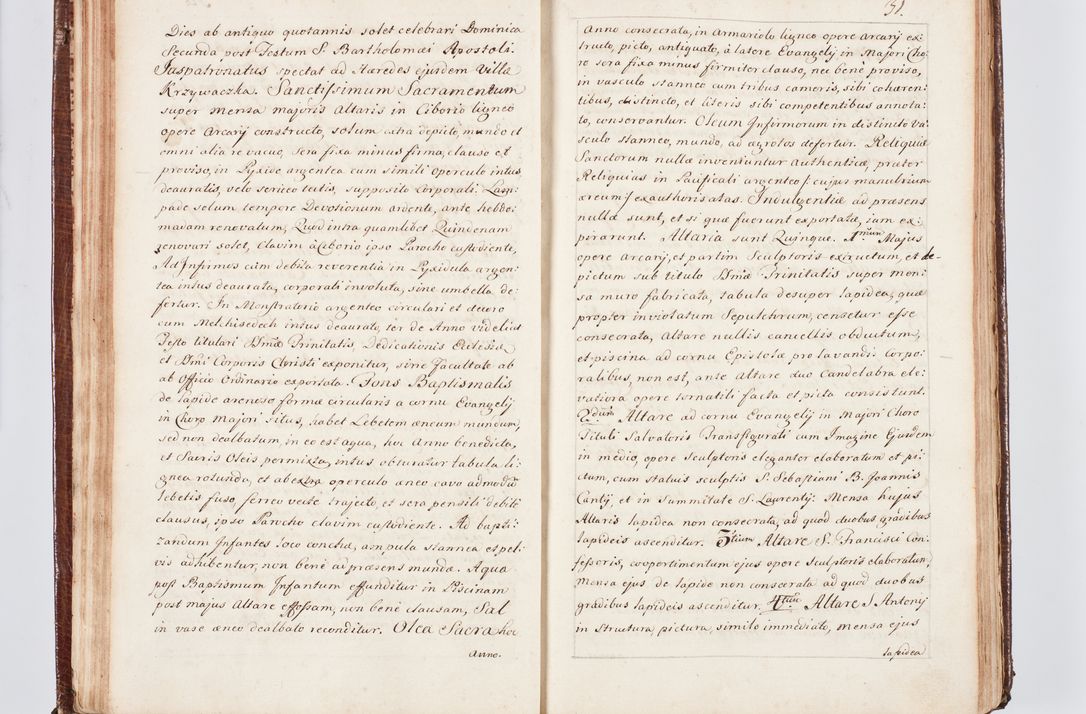 Dies ab antiquo quotannis solet celebrari Dominica
Secunda post Festum S. Bartholomæi Apostoli.
Juspatronatus spectat ad Hæredes ejusdem Villæ
Krzywaczka. Sanctissimum Sacramentum
super mensa majoris Altaris in Ciborio ligneo
opere Arcarij constructo, solum extra depicto, mundo et
omni alia re vacuo, sera fixa minus firma, clauso et
proviso, in Pyxide argentea cum simili operculo intus
deaurata, velo serico tectis, supposito Corporali: Lam-
pade solum tempore Devotionum ardente, ante hebdo:
madam renovatum, Quod intra quamlibet Quindenam
renovari solet, clavim à Ciborio ipso Parocho custodiente,
Ad Infirmos cùm debita reverentia in Pyxidula argen-
tea intus deaurata, corporali involuta, sine umbella de:
fertur. In Monstratorio argenteo circulari et decoro
cum Melchisedech intus deaurato, ter de Anno videlicet
Festo titulari Smæ Trinitatis, Dedicationis Ecclesiæ
et Smi Corporis Christi exponitur, sine facultate ab
ab Officio Ordinario exportata. Fons Baptismalis
de lapide arenoso formæ circularis a cornu Evangelij
in Choro Majori situs, habet Lebetem æneum mundum,
sed non dealbatum, in eo est aqua, hoc Anno benedicta,
et Sacris Oleis permixta, intus obturatur tabula li:
gnea rotunda, et ab extra operculo æneo cavo admodum
lebetis fuso, ferreo vecte trajecto, et sera pensili debitè
clausus, ipso Parocho clavim custodiente. Ad bapti:
zandum Infantes loco conchæ, ampula stannea et pel:
vis adhibentur, non bene ad præsens munda. Aqua
post Baptismum Infantum effunditur in Piscinam
post majus Altare effossam, non bene clausam, Sal
in vase æneo dealbato reconditur. Olea Sacra hoc
Anno.
51.
Anno consecrata, in Armariolo ligneo opere Arcarij ex:
tructo, picto, antiquato, à latere Evangelij in Majori Cho:
ro sera fixa minus firmiter clauso, nec benè proviso,
in vasculo stanneo cum tribus cameris, sibi cohæren:
tibus, distincto, et literis sibi competentibus annota:
to, conservantur. Oleum Infirmorum in distincto va:
sculo stanneo, mundo, ad ægrotos defertur. Reliquiæ
Sanctorum nullæ inveniuntur authenticæ, præter
Reliquias in Pacificali argenteo /: cujus manubrium
æreum :/ exauthorisatas. Indulgentiæ ad præsens
nullæ sunt, et si quæ fuerunt exportatæ, iam ex:
pirarunt. Altaria sunt Quinque. 1mum Majus
opere Arcarij, et partim Sculptoris extructum, et de-
pictum sub titulo Smæ Trinitatis super men:
sa muro fabricata, tabula desuper lapidea, quæ
propter inviolatum Sepulchrum, censetur esse
consecrata, Altare nullis cancellis obductum,
et piscina ad cornu Epistolæ pro lavandis Corpo:
ralibus, non est, ante Altare duo Candelabra ele:
vatiora opere tornatili facta et picta consistunt.
2dum Altare ad cornu Evangelij in Majori Choro
Tituli Salvatoris Transfigurati cum Imagine Ejusdem
in medio, opere Sculptoris eleganter elaboratum et pi:
ctum, cum statuis sculptis S. Sebastiani B. Joannis
Cantij, et in Summitate S. Laurentij: Mensa hujus
Altaris lapidea non consecrata, ad quod duobus gradibus
lapideis ascenditur. 3tium Altare S. Francisci Con:
fessoris, coopertimentum ejus opere Sculptoris elaboratum,
mensa ejus de lapide non consecrata ad quod duobus
gradibus lapideis ascenditur. 4tum Altare S. Antonij
in Structura, pictura, simile immediato, mensa ejus
lapidea